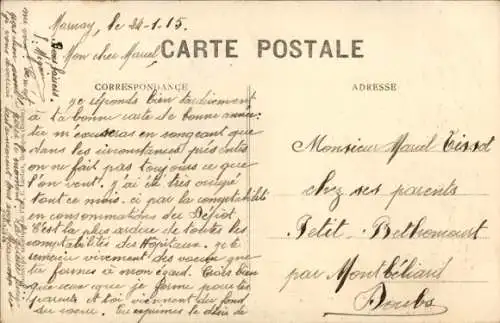 Marnay, le 24-1.15.
Mon cher Marcel,
CARTE POSTALE
CORRESPONDANCE
ADRESSE
Je réponds bien tardivement
à ta bonne carte de bonne année.
tu m'excuseras en songeant que
dans les circonstances présentes
on ne fait pas toujours ce que
l'on veut. J'ai été très occupé
tout ce mois-ci par la comptabilité
en consommations du Dépôt.
C'est la plus ardue de toutes les
comptabilités des Hôpitaux. Je te
remercie vivement des vœux que
tu formes à mon égard. Crois bien
que ceux que je forme pour tes
parents et toi viennent du fond
du cœur. Tu exprimes le désir de
Monsieur Marcel Tissot
chez ses parents
Petit-Bethoncourt
par Montbéliard
Doubs